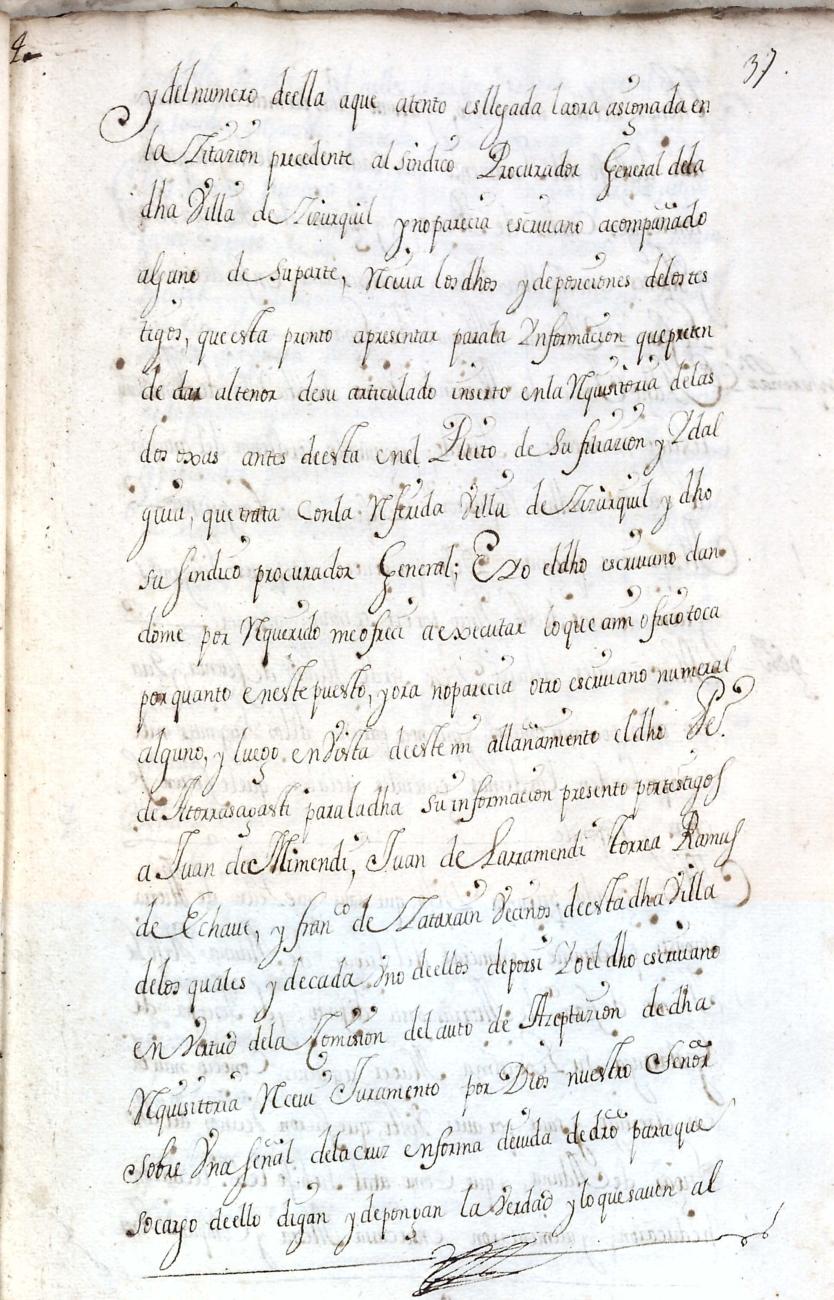 37.
y del numero de ella a que atento es llegada la ora asignada en
la Zitazion precedente al sindico Procurador General de la
dha Villa de Zizurquil y no parecia escriuano acompañado
alguno de su parte, Reciua los dhos y deposiciones de los tes
tigos, que esta pronto a presentar para la Ynformacion que preten
de dar al tenor de su articulado inserto en la Requisitoria de las
dos oxas antes de esta en el Pleito de su filiazion y Ydal
guia, que trata con la Referida Villa de Zizurquil y dho
su sindico procurador General; E Yo el dho escriuano dan
dome por Requerido me ofreci a executar lo que a mi oficio toca
por quanto en este puesto, y ora no parecia otro escriuano numeral
alguno, y luego en Vista de este mi allañamiento el dho
de Atorrasagasti para la dha su informacion presento por testigos
a Juan de Mimendi, Juan de Larramendi torrea Ramus
de Echaue, y franco de Zatarain Vecinos de esta dha Villa
de los quales y de cada Vno de ellos de por si Yo el dho escriuano
en Virtud de la Comision del auto de Azeptazion de dha
Requisitoria Reciui Juramento por Dios nuestro Señor
sobre Vna señal de la cruz en forma deuida de dro para que
so cargo de ello digan y depongan la Verdad y lo que sauen al